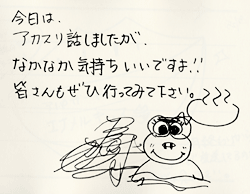 今日は、
アカスリ話しましたが、
なかなか気持ちいいですよ!!
皆さんもぜひ行ってみて下さい。